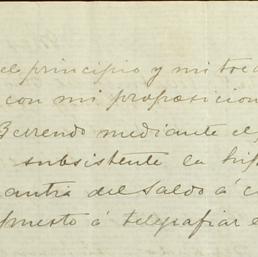 el principio y mi
con mi proposicion
Berrendo mediante el
subsistente la hip
antia del Saldo á c
puesto á telegrafiar e